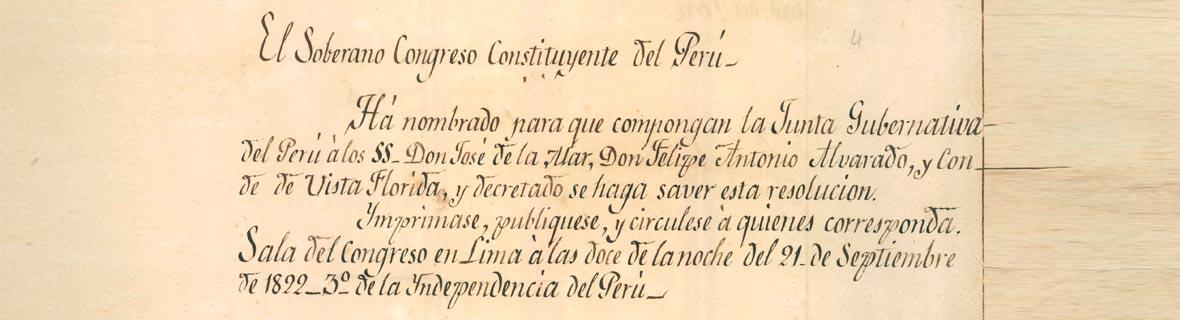 El Soberano Congreso Constituyente del Perú_
Há nombrado para que compongan la Junta Gubernativa
del Perú à los SS_ Don José de la Mar, Don Felipe Antonio Alvarado, y Con_
de de Vista Florida, y decretado se haga saver esta resolucion.
Ymprimase, publiquese, y circulese à quienes corresponda.
Sala del Congreso en Lima à las doce de la noche del 21_ de Septiembre
de 1822_3º de la Yndependencia del Perú_